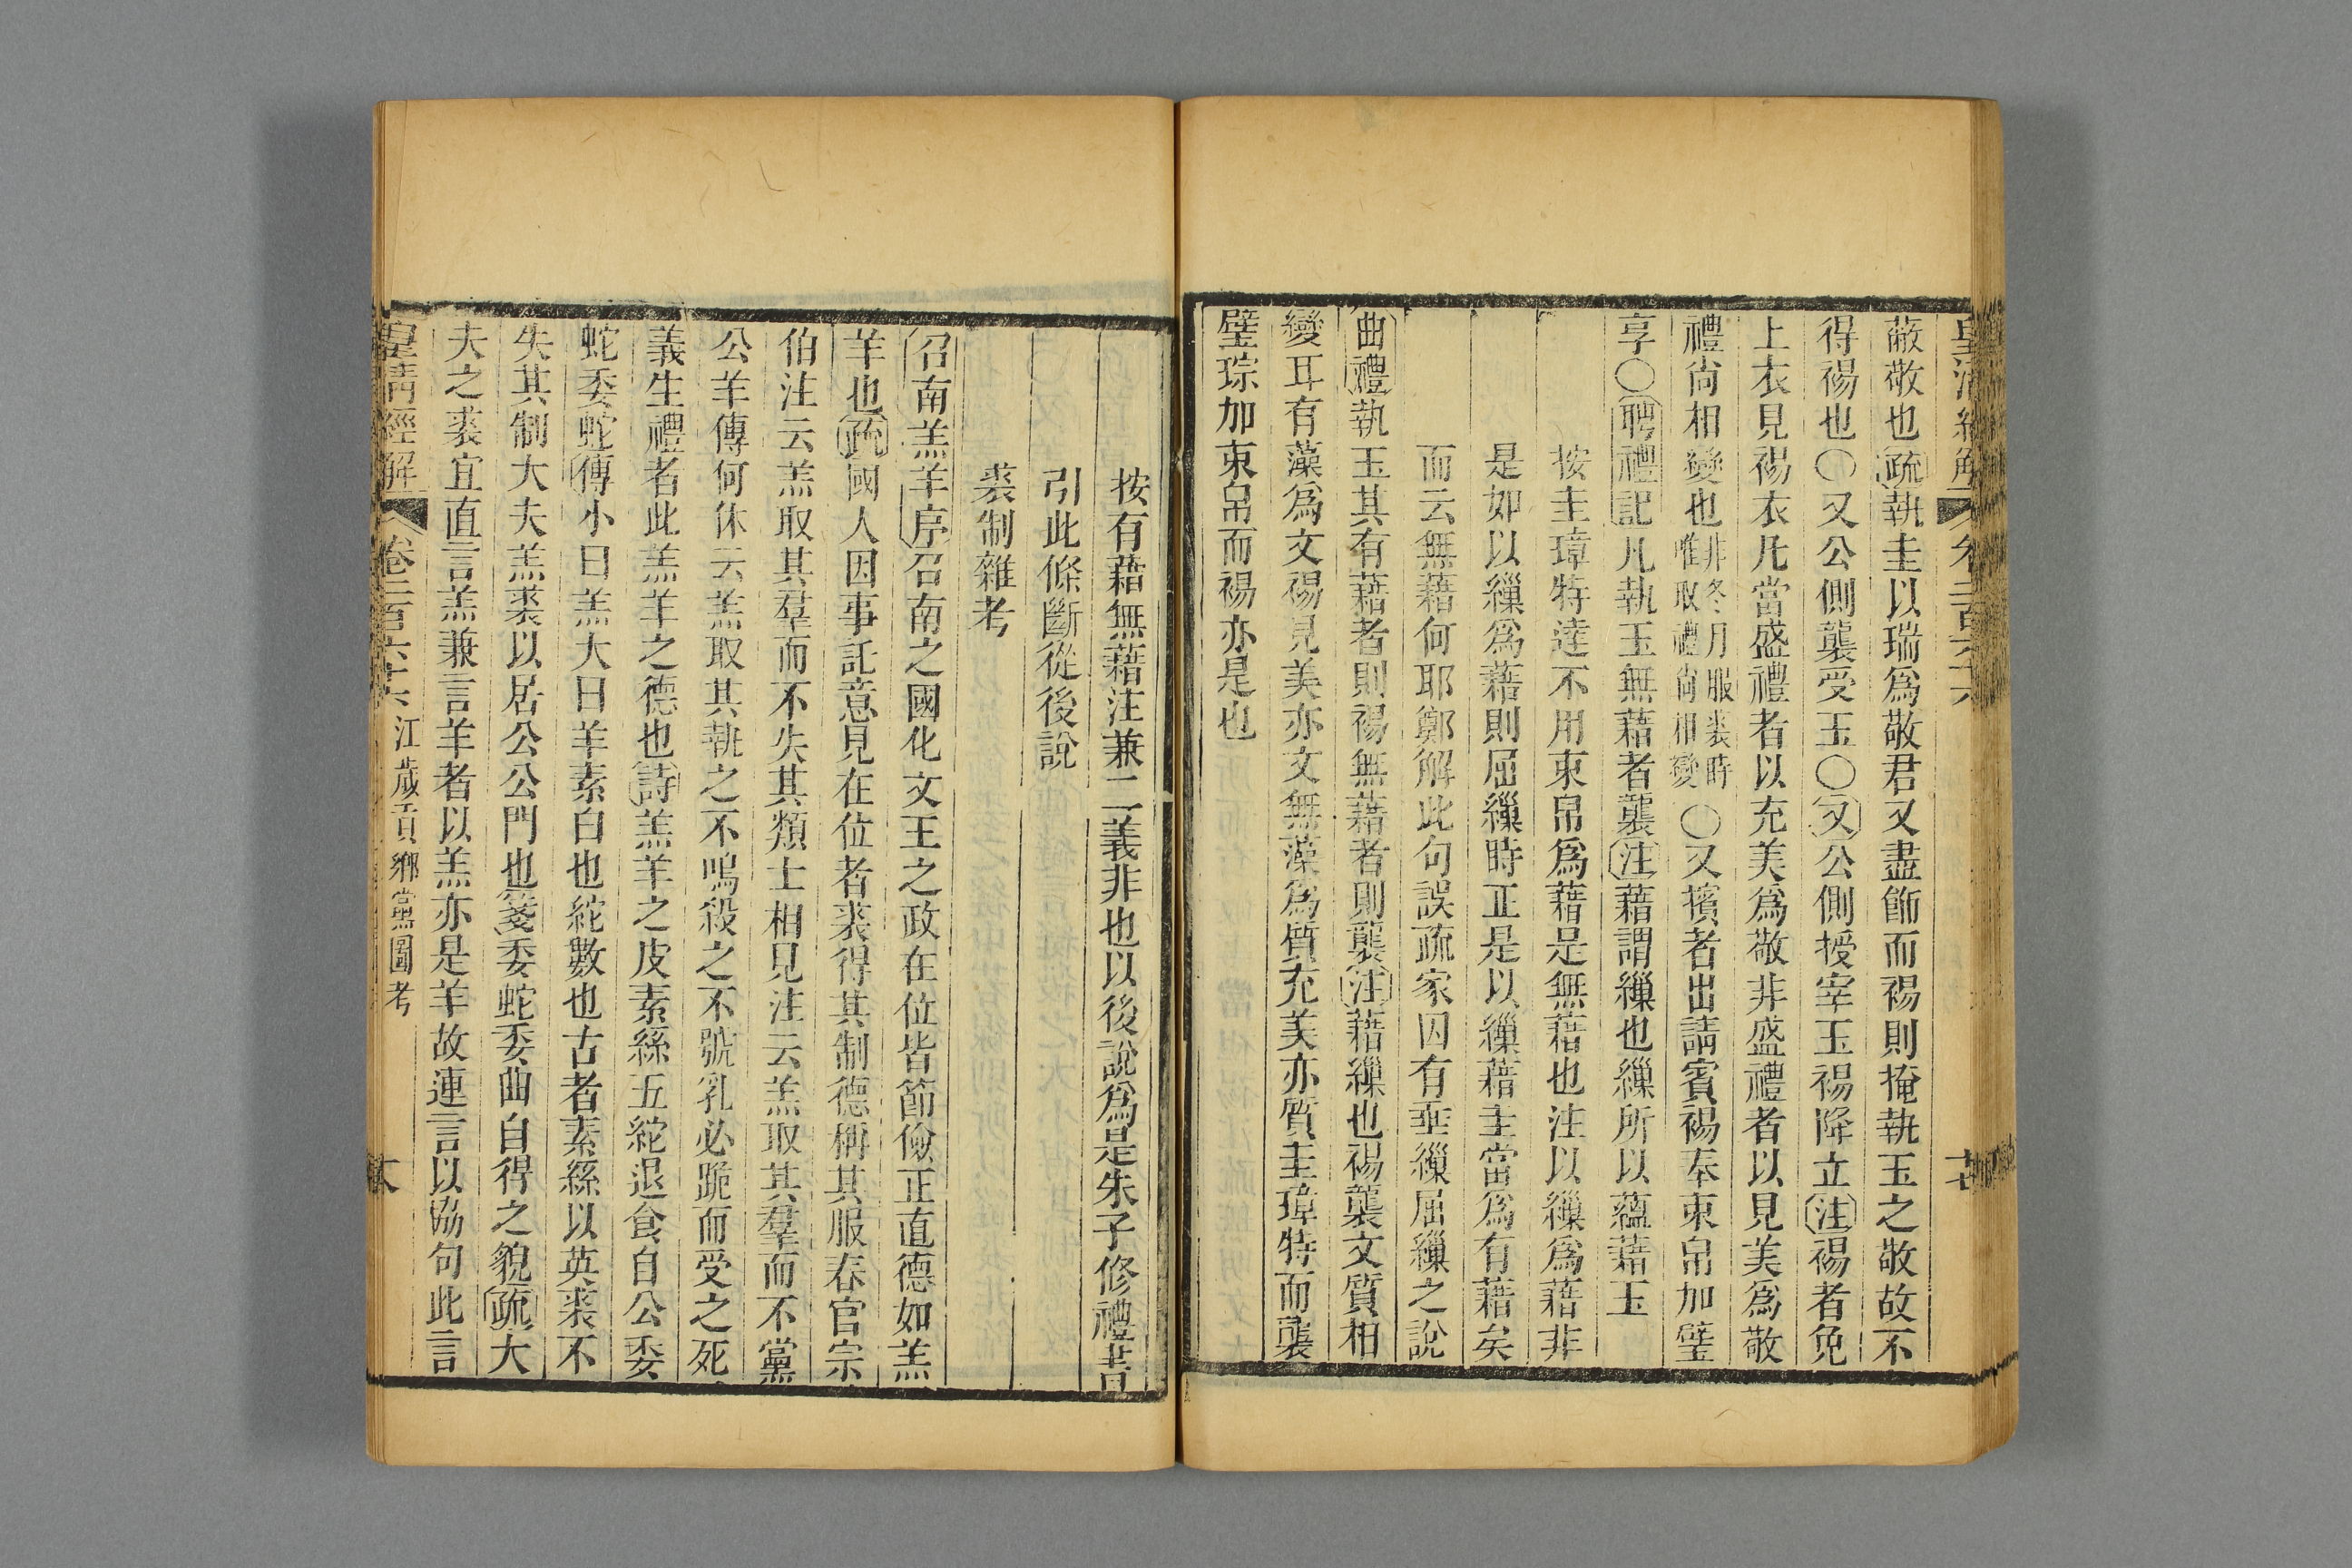 皇清經解 卷二百六十六 十七
蔽敬也疏執圭以瑞爲敬君又盡飾而裼則掩執玉之敬故不
得裼也〇又公側襲受玉〇又公側授宰玉裼降立注裼者免
上衣見裼衣凡當盛禮者以充美爲敬非盛禮者以見美爲敬
禮尚相變也非冬月服裘時唯取禮尚相變〇又擯者出請賓裼奉束帛加璧
享〇聘禮記凡執玉無藉者襲注藉謂繅也繅所以蘊藉玉
按圭璋特達不用束帛爲藉是無藉也注以繅爲藉非
是如以繅爲藉則屈繅時正是以繅藉圭當爲有藉矣
而云無藉何耶鄭解此句誤疏家因有垂繅屈繅之說
曲禮執玉其有藉者則裼無藉者則襲注藉繅也裼襲文質相
變耳有藻爲文裼見美亦文無藻爲質充美亦質圭璋特而襲
璧琮加束帛而裼亦是也
按有藉無藉注兼二義非也以後說爲是朱子修禮書
引此條斷從後說
裘制雜考
召南羔羊序召南之國化文王之政在位皆節儉正直德如羔
羊也疏國人因事託意見在位者裘得其制德稱其服春官宗
伯注云羔取其羣而不失其類士相見注云羔取其羣而不黨
公羊傳何休云羔取其執之不鳴殺之不號乳必跪而受之死
義生禮者此羔羊之德也詩羔羊之皮素絲五紽退食自公委
蛇委蛇傳小曰羔大曰羊素白也紽數也古者素絲以英裘不
失其制大夫羔裘以居公公門也箋委蛇委曲自得之貌疏大
夫之裘宜直言羔兼言羊者以羔亦是羊故連言以協句此言
皇清經解 卷二百六十六 江歲貢鄉黨圖考 大